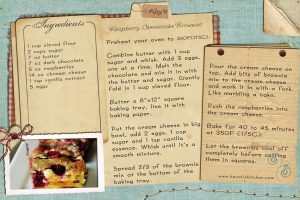 Kay's
Ingredients
1 cup sieved flour
2 cups sugar
7 oz butter
7 oz dark chocolate
5 raspberries
14 oz cream cheese
1 tsp vanilla extract
5 eggs
Raspberry Cheesecake Brownies
Preheat your oven to 350F(175C).
Combine butter with 1 cup
sugar and whisk. Add 3 eggs,
one at a time. Melt the
chocolate and mix it in with
the butter and sugar. Gently
fold in 1 cup sieved flour.
Butter a 8"x12" square
baking tray, line it with
baking paper.
Put the cream cheese in big
bowl, add 2 eggs, 1 cup
sugar and 1 tsp vanilla
essence. Whisk until it's a
smooth mixture.
Spread 2/3 of the brownie
mix at the bottom of the
baking tray.
Pour the cream cheese on
top. Add bits of brownie
mix to the cream cheese
and work it in with a fork.
Like marbling a cake.
Push the raspberries into
the cream cheese.
Bake for 40 to 45 minutes
at 350F (175C).
Let the brownies cool off
completely before cutting
them in squares.